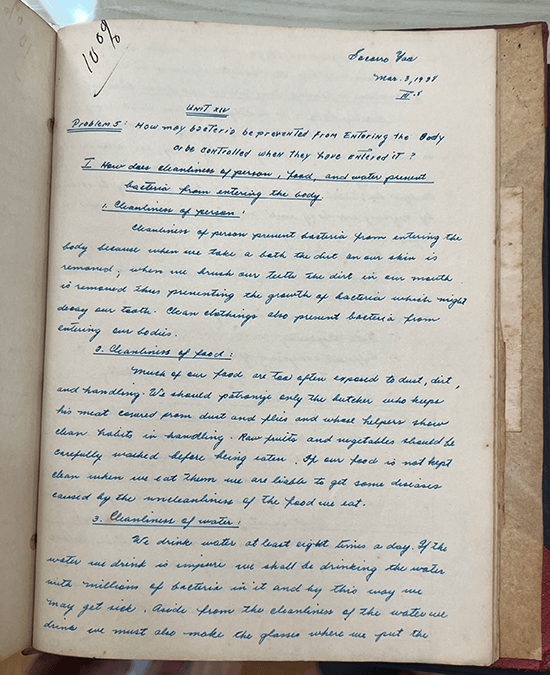 100%
Socorro Yaa
Mar. 3, 1938
IV-5
UNIT XIV
Problem 5: How may bacteria be prevented from Entering the Body
or be controlled when they have entered it?
I. How does cleanliness of person, food, and water prevent
bacteria from entering the body.
1. Cleanliness of person:
Cleanliness of person prevent bacteria from entering the
body because when we take a bath the dirt on our skin is
removed; when we brush our teeth the dirt in our mouth
is removed thus preventing the growth of bacteria which might
decay our tooth. Clean clothings also prevent bacteria from
entering our bodies.
2. Cleanliness of food:
Much of our food are too often exposed to dust, dirt,
and handling. We should patronize only the butcher who keeps
his meat covered from dust and flies and whose helpers show
clean habits in handling. Raw fruits and vegetables should be
carefully washed before being eaten. If our food is not kept
clean when we eat them we are liable to get some diseases
caused by the uncleanliness of the food we eat.
3. Cleanliness of water:
We drink water at least eight times a day. If the
water we drink is impure we shall be drinking the water
with millions of bacteria in it and by this way we
may get sick. Aside from the cleanliness of the water we
drink we must also make the glasses where we put the